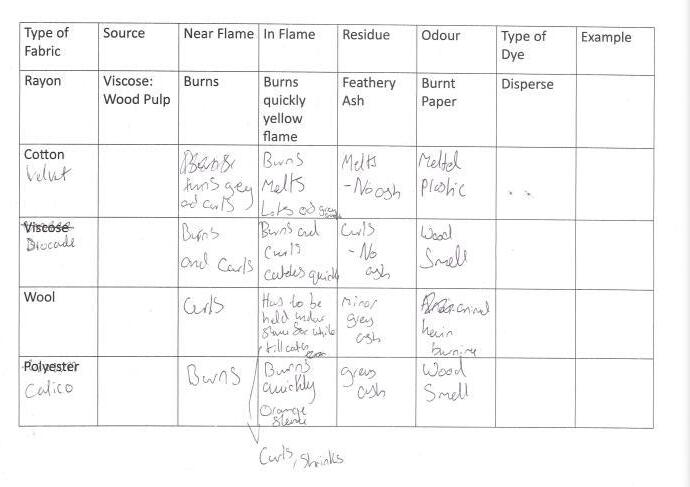 Type of Fabric Source Near Flame In Flame Residue Odour Type of Dye Example
Rayon Viscose: Wood Pulp Burns Burns quickly yellow flame Feathery Ash Burnt Paper Disperse
Cotton Velvet turns grey and curls Burns Melts Lots of grey Melts - No ash Melted Plastic
Viscose Brocade Burns and Curls Burns and Curls catches quick Curls - No ash Wood Smell
Wool Curls Has to be held under flame for while till catches Minor grey ash animal hair burning
Polyester Calico Burns Burns quickly Orange flame grey ash Wood Smell
Curls, Shrinks